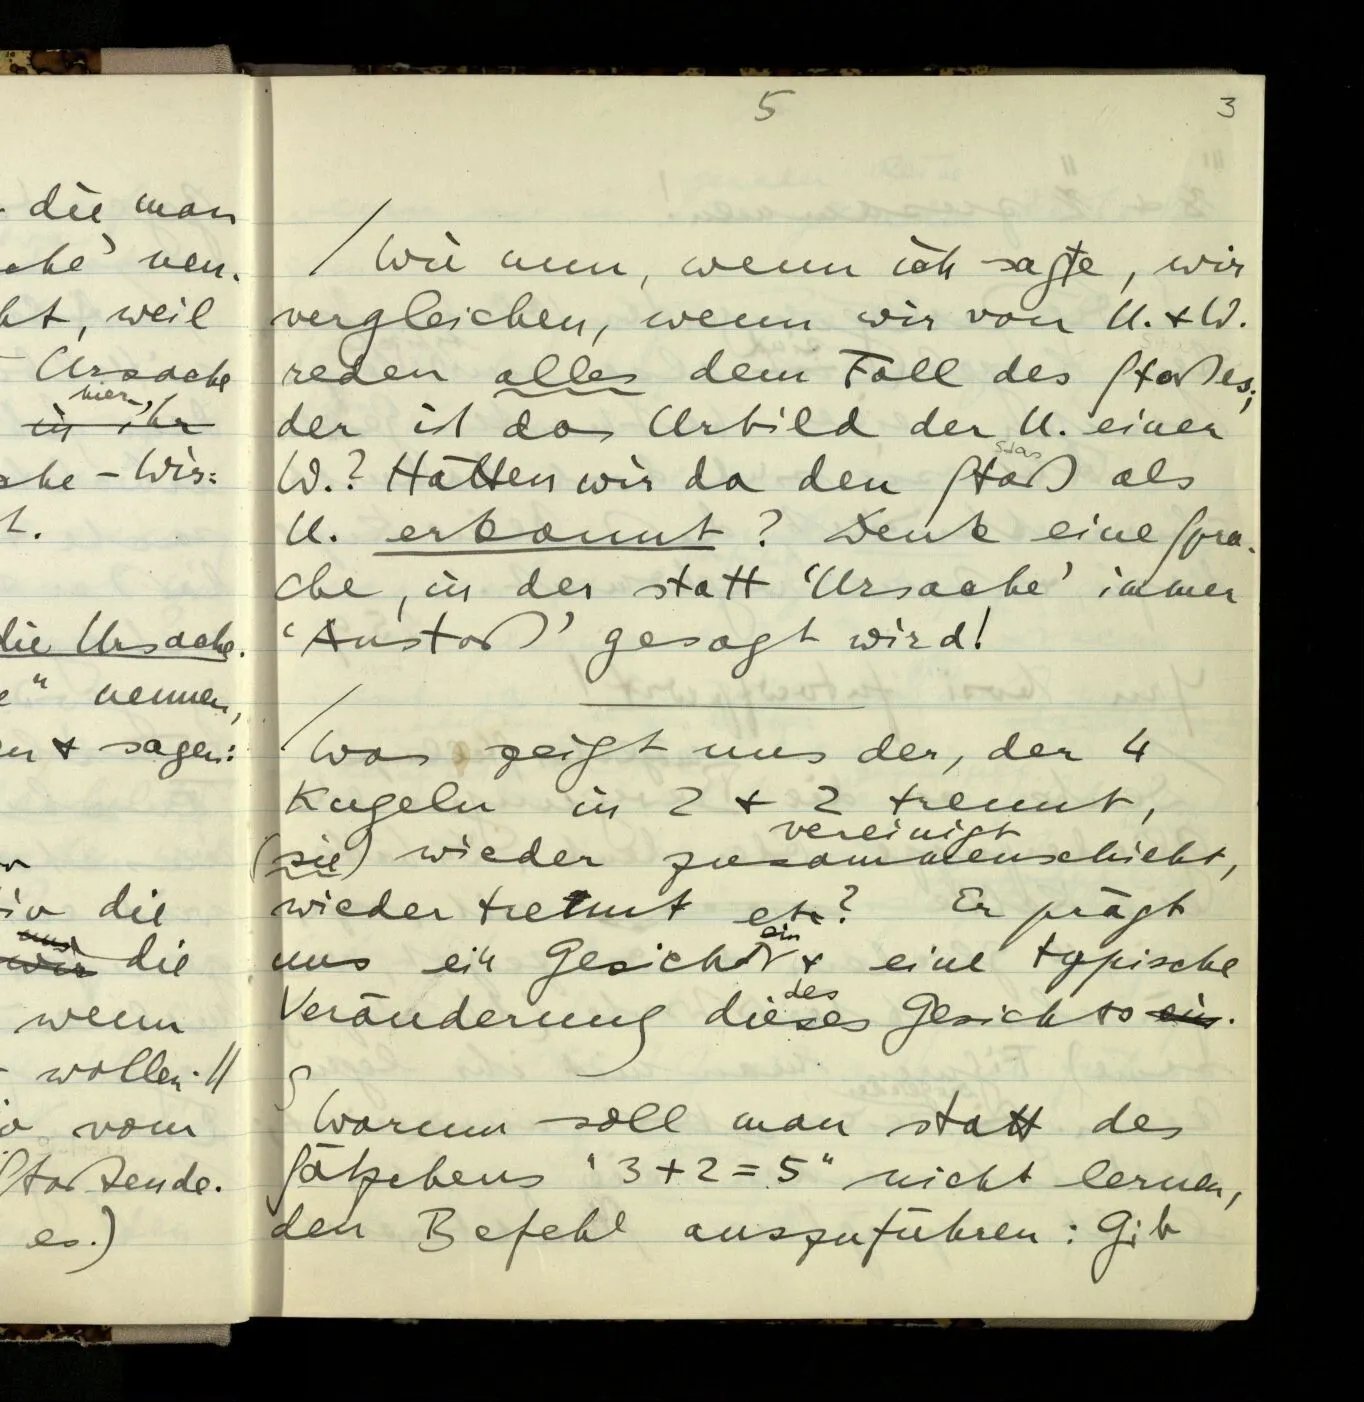 - die man
ache' nen-
ht, weil
- Ursache
hier,
in ihr
ache – Wir=
t.
die Ursache.
e" nennen,
en + sagen:
die
uns
wir die
wenn
- wollen. //
vom
Stoßende.
es.)
5
3
/ Wie nun, wenn ich sagte, wir
vergleichen, wenn wir von U. + W.
reden alles dem Fall des Stoßes;
der ist das Urbild der U. einer
das
W.? Hätten wir da den Stoß als
U. erkannt? Denk eine Spra-
che, in der statt 'Ursache' immer
'Anstoß' gesagt wird!
/ Was zeigt uns der, der 4
Kugeln in 2 + 2 trennt,
vereinigt
(sie) wieder zusammenschiebt,
wieder trennt etc? Er prägt
ein
uns ein Gesicht + eine typische
des
Veränderung dieses Gesichts ein.
S Warum soll man statt des
Sätzchens "3+2=5" nicht lernen,
den Befehl auszuführen: Gib